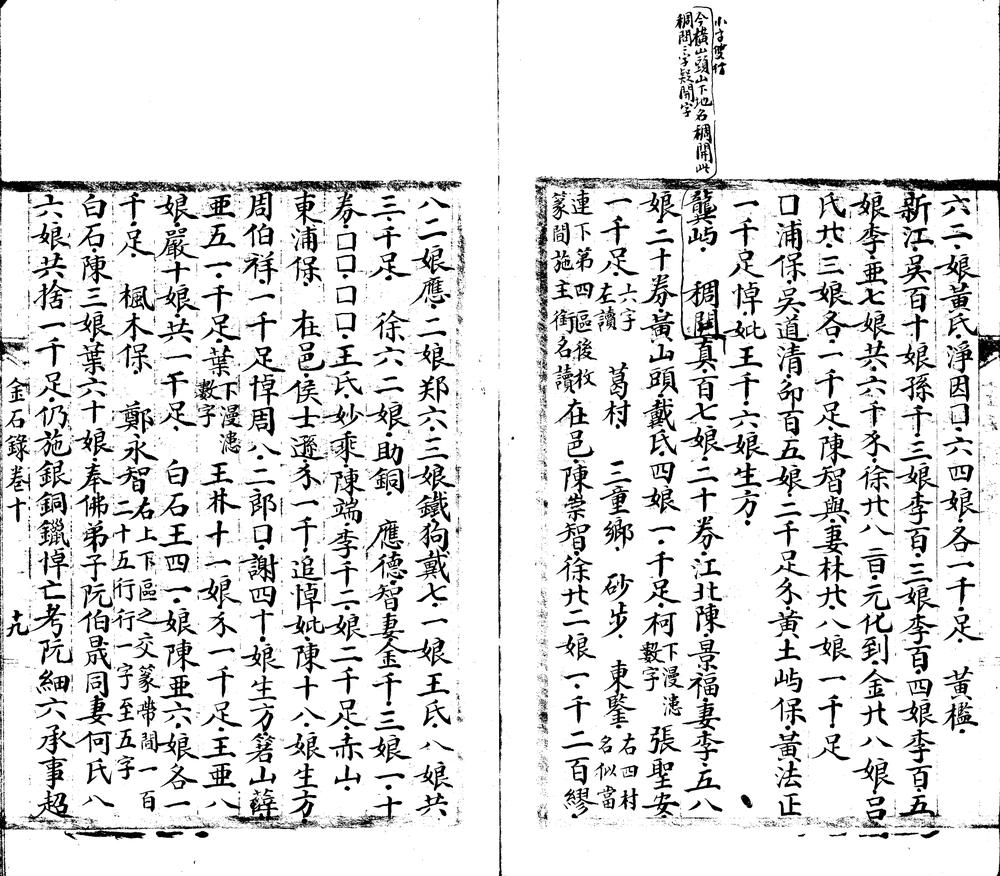 小字雙行
今橫山頭山下地名稠開此
稠間二字疑開字
六二娘黃氏淨因口六四娘各一千足　黃檻
新江吳百十娘孫千三娘李百三娘李百四娘李百五
娘李亜七娘共六千糸徐廿八二百元化到金廿八娘呂
氏廿三娘各一千足陳智與妻林廿八娘一千足
口浦保吳道清命百五娘二千足糸黃土屿保黃法正
一千足悼妣王千六娘生方
龔屿　稠間真百七娘二十券江北陳景福妻李五八
娘二十券黃山頭戴氏四娘一千足柯下漫漶數字　張聖安
一千足六字左讀　葛村　三童鄉　砂步　東鑒右四村名似當
連下第四區後枚篆間施主銜名讀　在邑陳崇智徐廿二娘一千二百繆
八二娘應二娘郑六三娘鐵狗戴七一娘王氏八娘共
三千足　徐六二娘助銅　應德智妻金千三娘一十
券口口口口王氏妙乘陳端李千二娘二千足赤山
東浦保　在邑侯士遜糸一千追悼妣陳十八娘生方
周伯祥一千足悼周八二郎口謝四十娘生方箬山薛
亜五一千足葉下漫漶數字　王林十一娘糸一千足王亜八
娘嚴十娘共一千足　白石王四一娘陳亜六娘各一
千足　楓木保　鄭永智右上下區之交篆帶間一百二十五行行一字至五字
白石陳三娘葉六十娘奉佛弟子阮伯晟同妻何氏八
六娘共捨一千足仍施銀銅鑞悼亡考阮細六承事超
金石錄卷十　十九